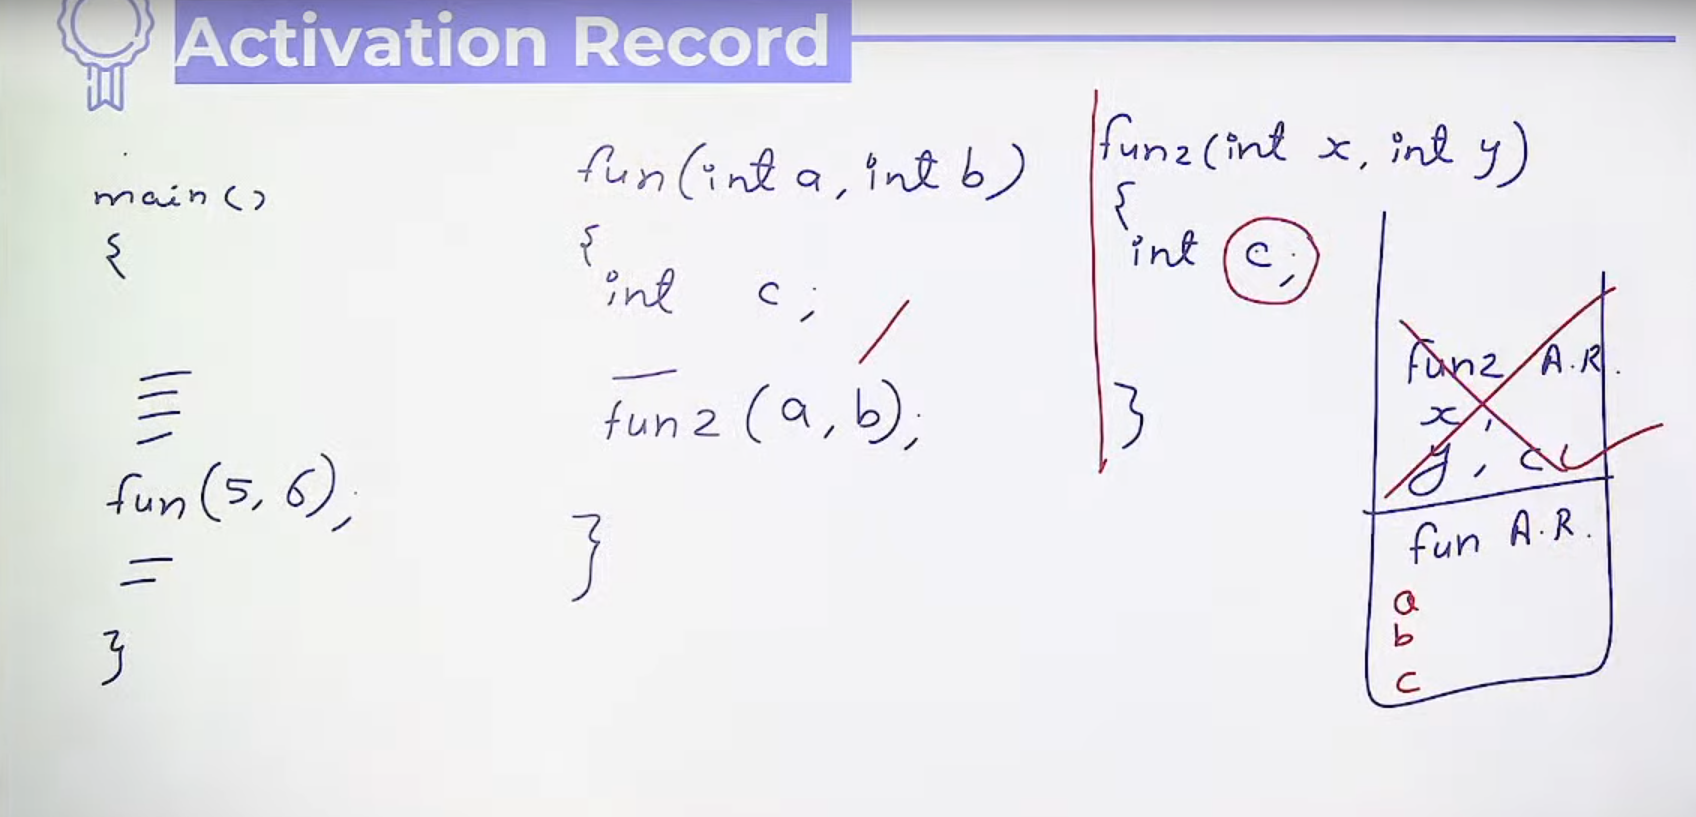 Activation Record
main()
{
fun(5, 6);
}
fun(int a, int b)
{
int c;
fun2(a, b);
}
fun2(int x, int y)
{
int c;
}
fun2 A.R.
x,
y, c
fun A.R.
a
b
c